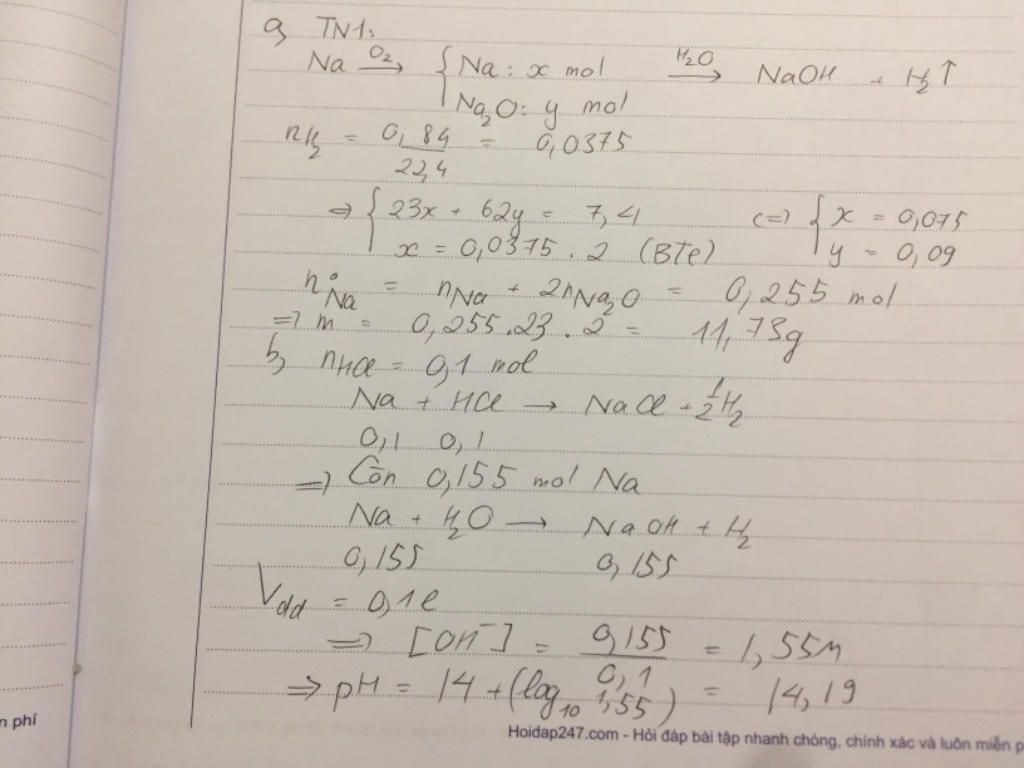 a, TN1:
Na →(O2) { Na: x mol →(H2O) NaOH + H2↑
Na2O: y mol
nH2 = 0,84/22,4 = 0,0375
⇒ { 23x + 62y = 7,41 (=) { x = 0,075
x = 0,0375 . 2 (BTe) y = 0,09
nNa = nNa + 2nNa2O = 0,255 mol
=) m = 0,255.23 . 2 = 11,73g
b, nHCl = 0,1 mol
Na + HCl → NaCl + 1/2H2
0,1 0,1
=) Còn 0,155 mol Na
Na + H2O → NaOH + H2
0,155 0,155
Vdd = 0,1l
=> [OH-] = 0,155/0,1 = 1,55M
=> pH = 14 + (log10 1,55) = 14,19
n phí
Hoidap247.com - Hỏi đáp bài tập nhanh chóng, chính xác và luôn miễn p